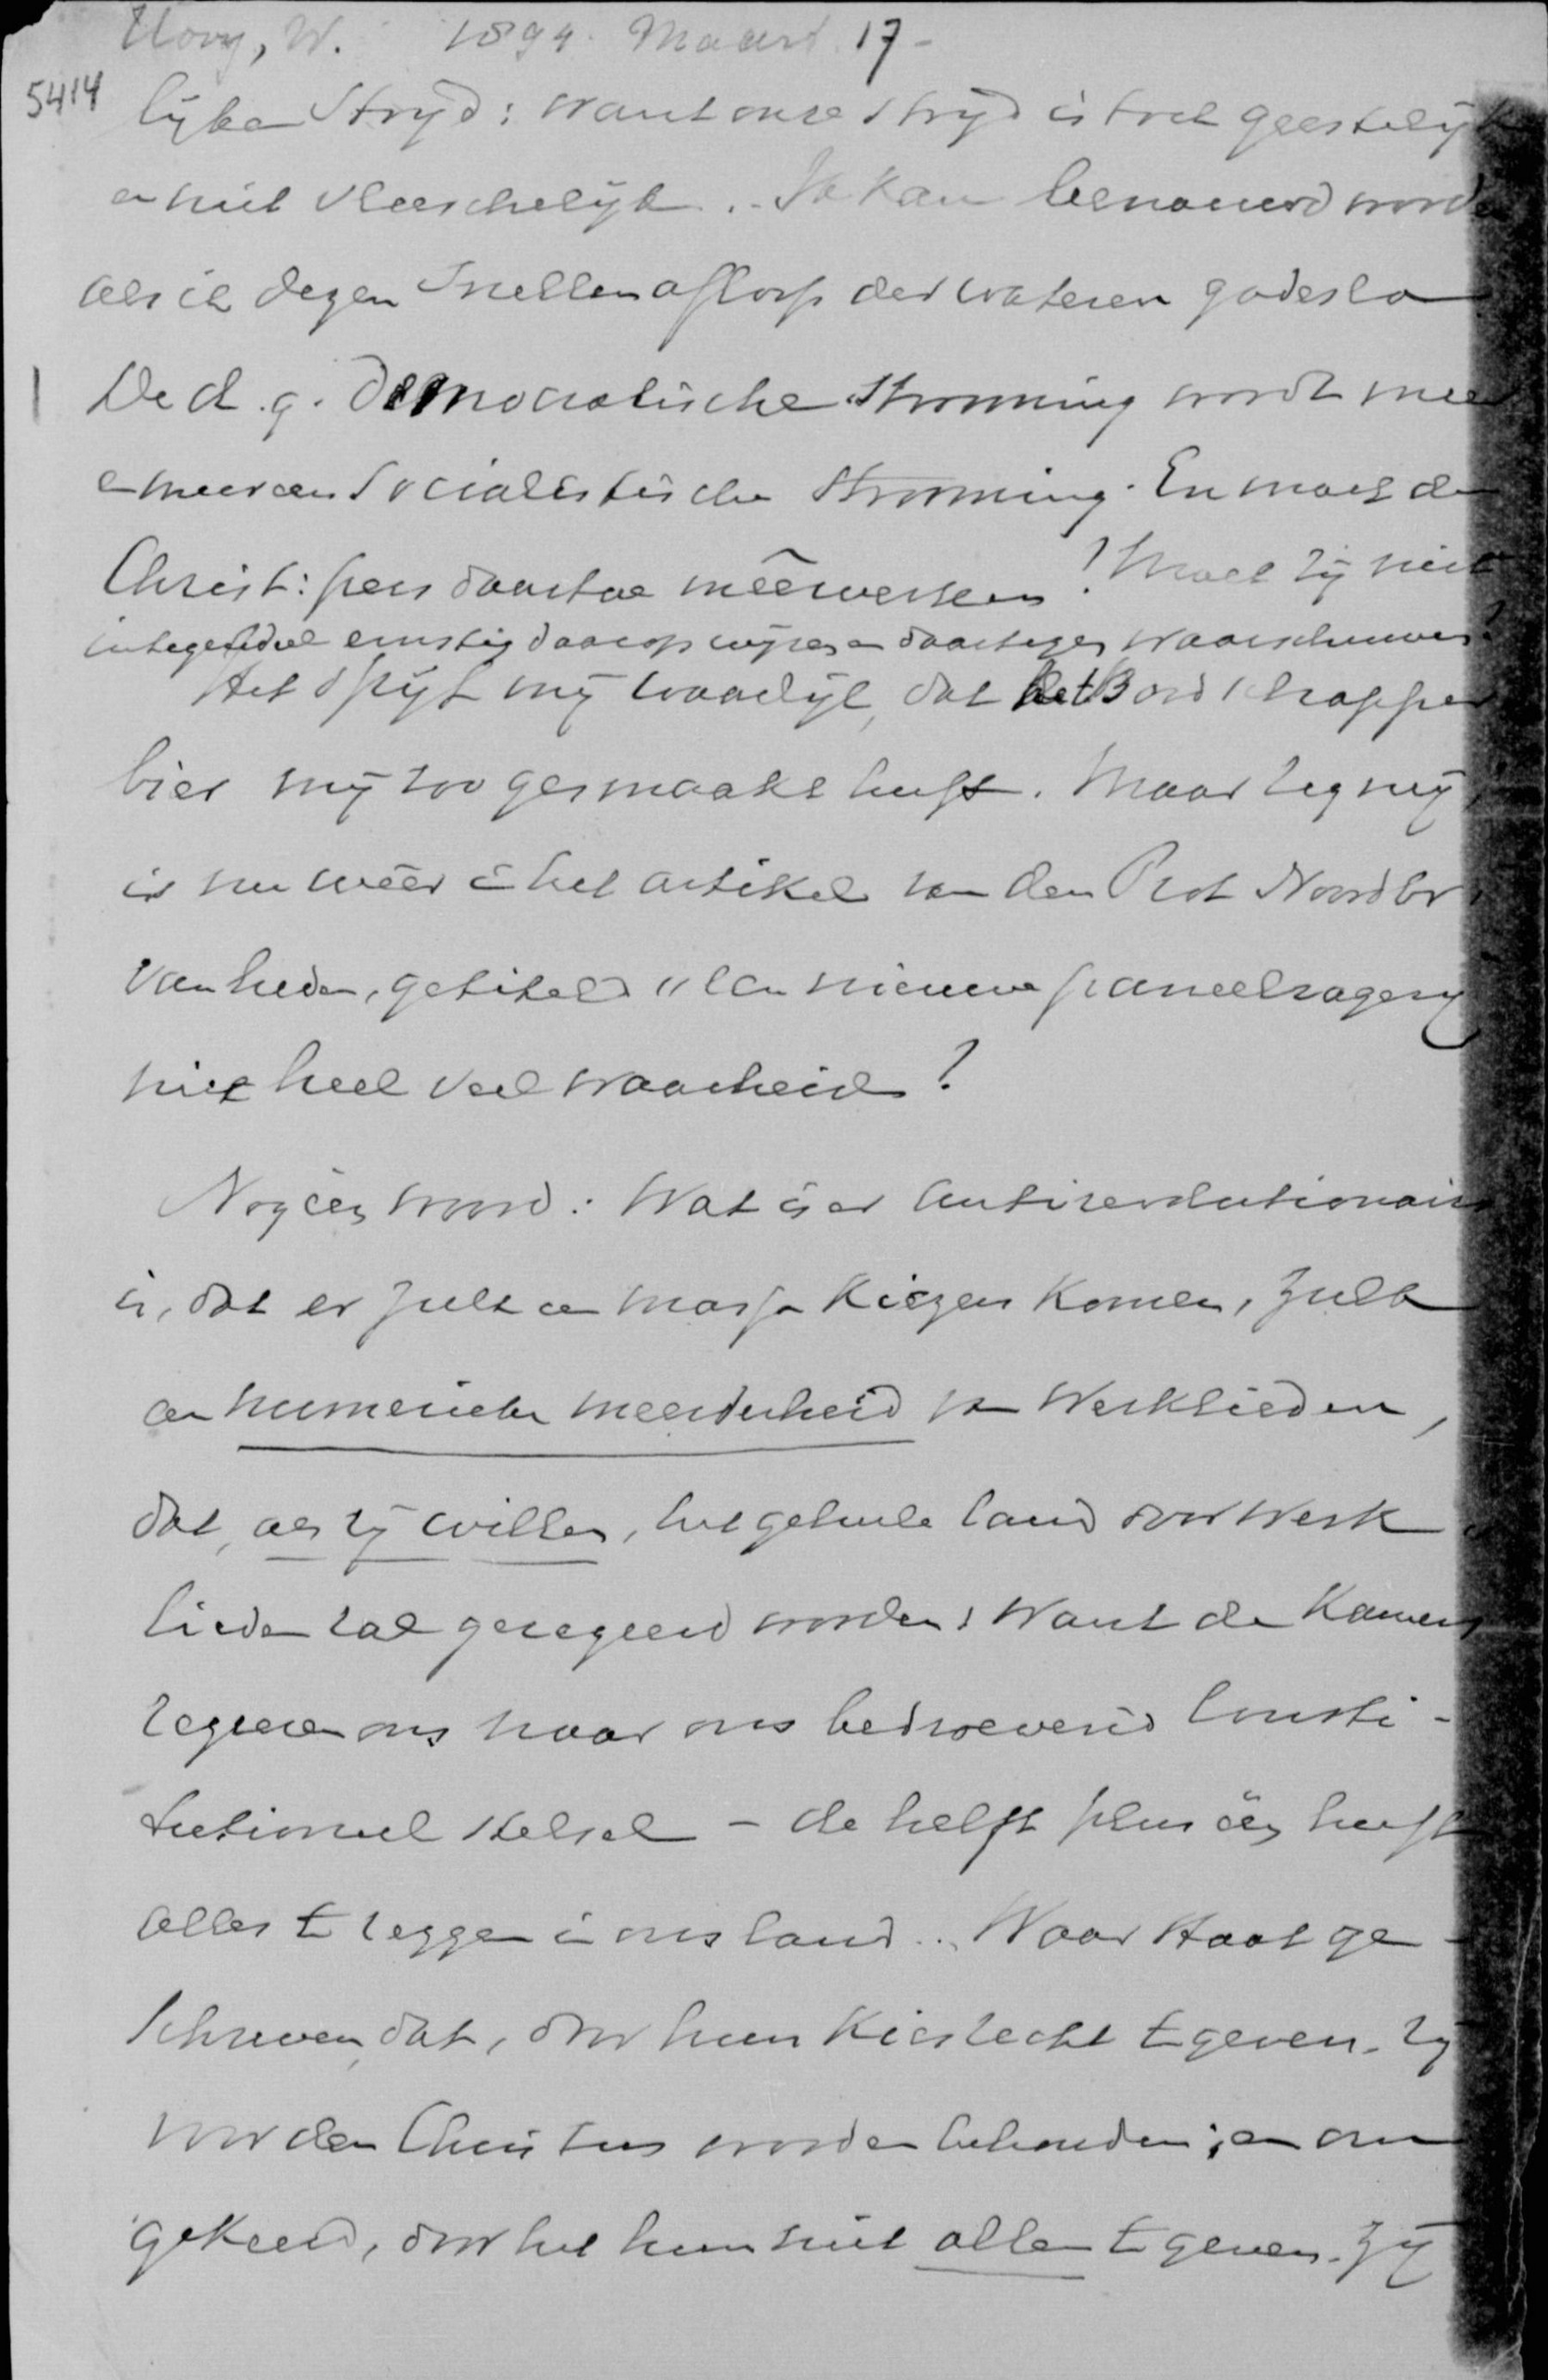 Hovy, W. 1894. Maart 17-
5414
lijken strijd: want onze strijd is toch geestelijk
en niet vleeschelijk. Ik kan benauwd worden
als ik dezen snellen afloop der wateren gadesla
De z.g. democratische strooming wordt meer
en meer een socialistische strooming. En moet de
Christ: pers daartoe meêwerken? Moet zij niet
integendeel ernstig daarop wijzen en daartegen waarschuwen?
Het spijt mij waarlijk, dat het Boodschapper
bier mij zoo gesmaakt heeft. Maar zeg mij,
is nu wéér in het artikel van den Prot Noordbr.
van heden, getiteld "een nieuwe paneelzagerij
niet heel veel waarheid?
Nog één woord: Wat is er antirevolutionair
in, dat er zulk een massa kiezers komen, zulk
een numerieke meerderheid van werklieden,
dat, als zij willen, het geheele land door werk
lieden zal geregeerd worden; want de Kamers
regeeren ons naar ons bedroevend consti-
tutioneel stelsel - de helft plus één heeft
alles te zeggen in ons land.. Waar staat ge-
schreven, dat, door hun kiesrecht te geven, zij
voor den Christus worden behouden; en om
gekeerd, door het hun niet allen te geven, zij